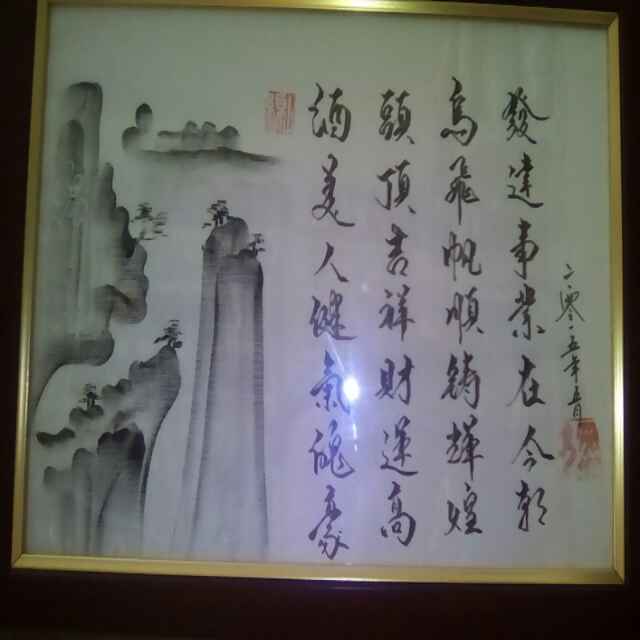 酒美人健氣魄豪
頭頂吉祥財運高
鳥飛帆順鑄輝煌
發達事業在今朝
二零一五年